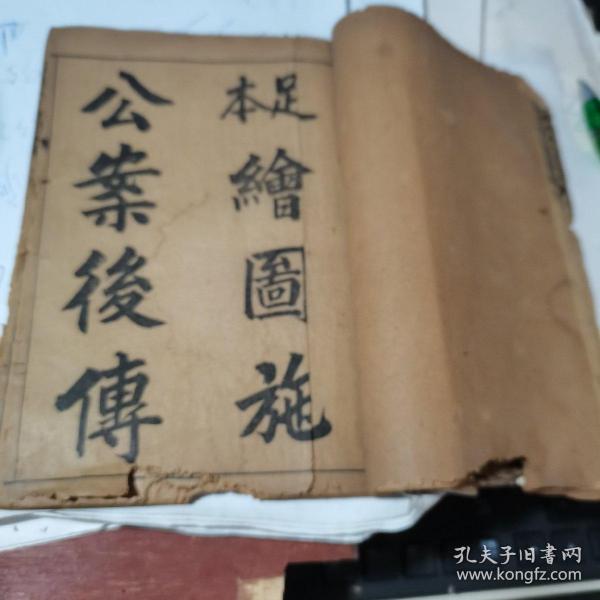 足本
繪圖施
公案後傳
孔夫子旧书网
www.kongfz.com